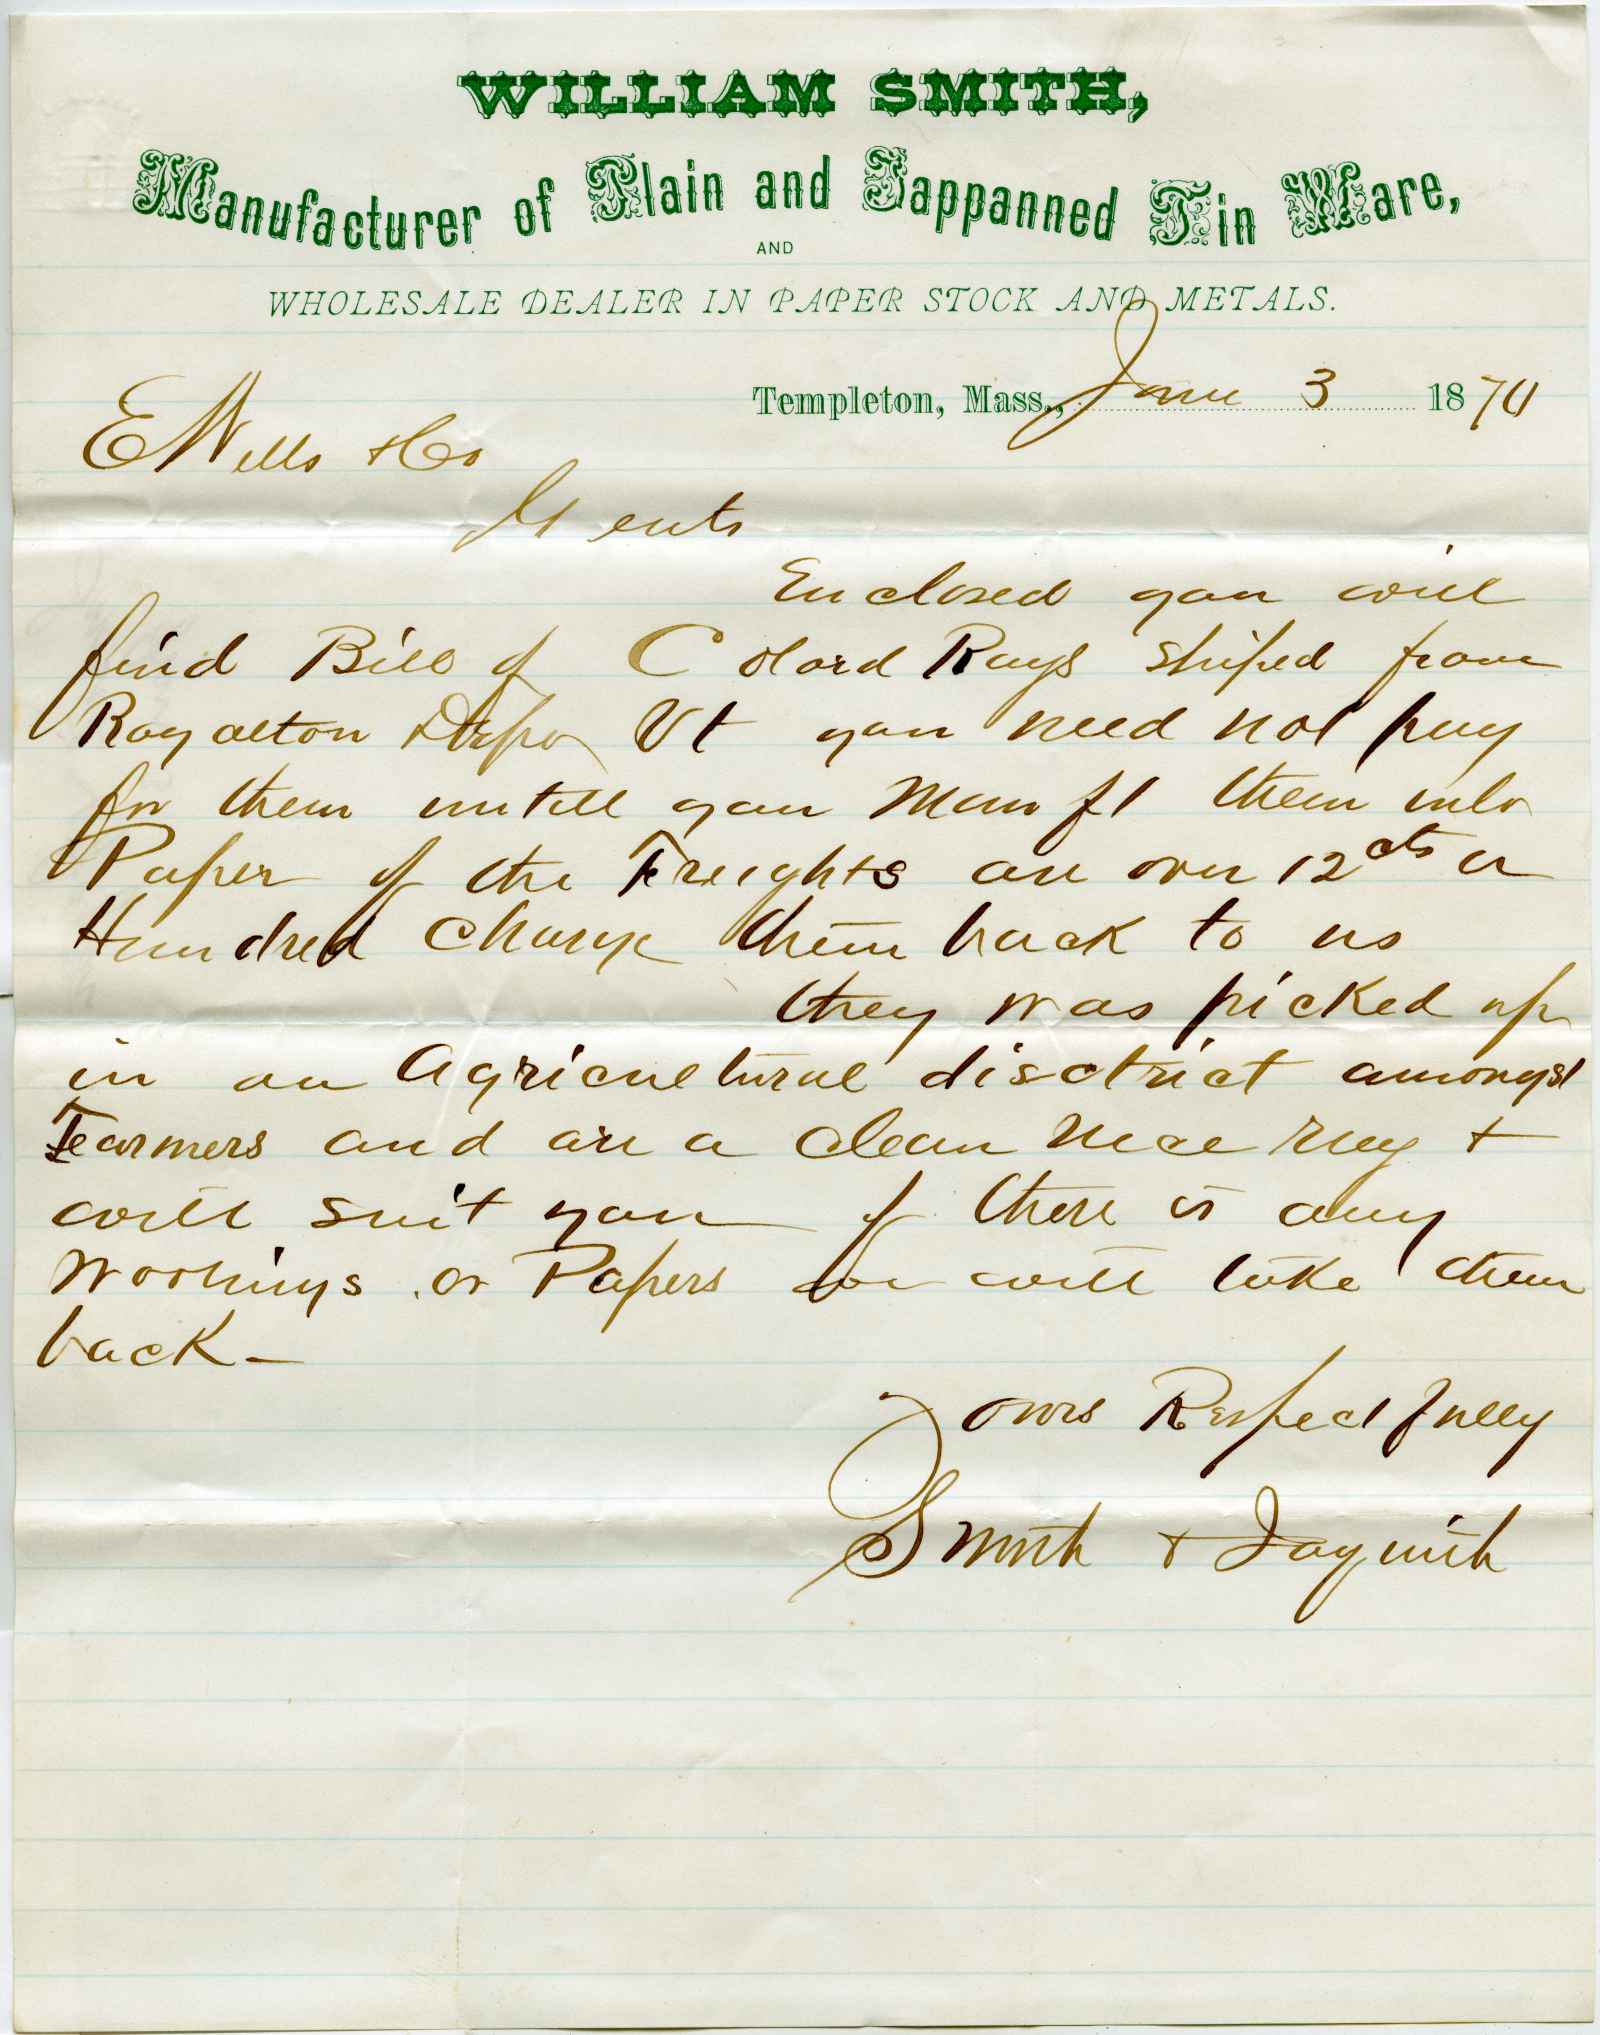 WILLIAM SMITH,
Manufacturer of Plain and Jappanned Tin Ware,
AND
WHOLESALE DEALER IN PAPER STOCK AND METALS.
Templeton, Mass., June 3 1870
E Wells & Co
Gents
Enclosed you will
find Bill of Colord Rags shiped from
Royalton Depo Vt you need not pay
for them untill you Manft them into
Paper if the Freights are over 12 cts a
Hundred Charge them back to us
they was picked up
in an Agricultural disctrict amongst
Farmers and are a clean nice rag &
will suit you if there is any
Woolings or Papers we will take them
back -
Yours Respectfully
Smith & Jaquith